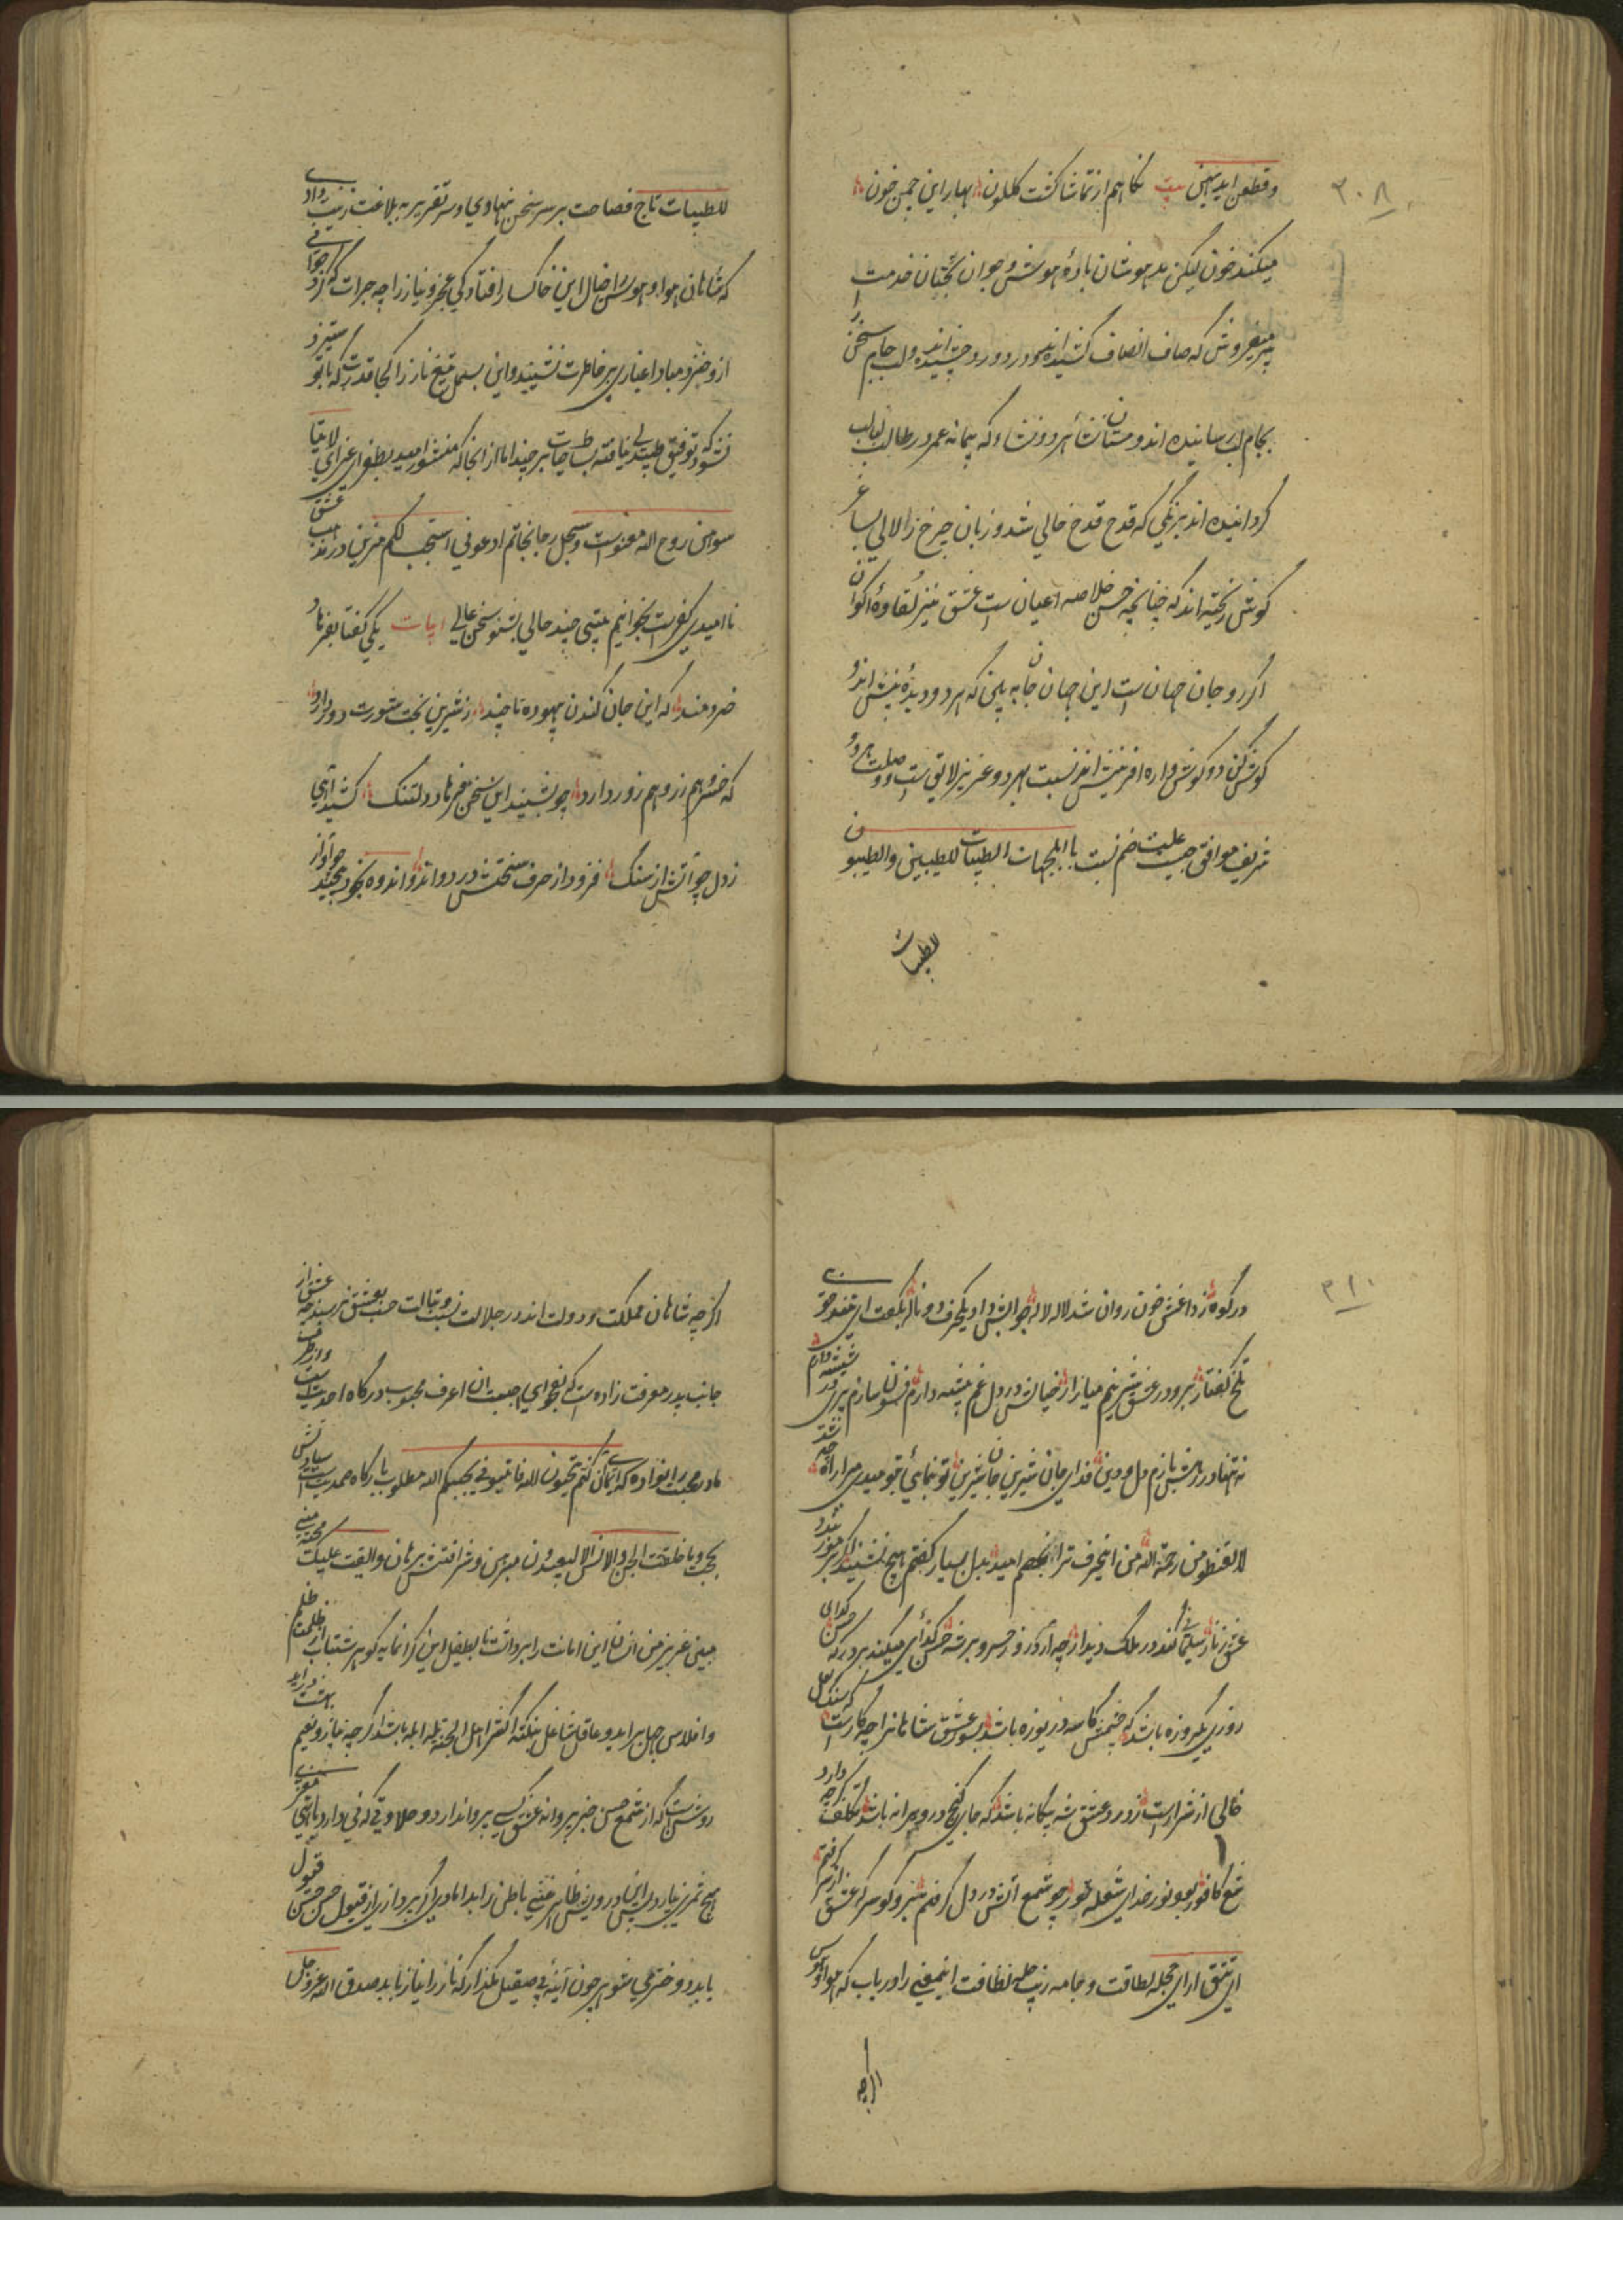 ۳۰۸
وقطعن ایدیهن بیت نکاهم از تماشا کشت کلکون بهار این چمن خون
میکند خون لیکن مدهوشان باده هوش و جوان بختان خدمت
پیر میفروش که صاف انصاف کشیده اند و درد درد چشیده اند و لب جام سخن را
بجام لب رسانیده اند و مستان نشأ هر دو نشاء که پیمانه عمر در طالب لبالب
کردانیده اند بزنکی که قدح قدح خالی شد و زبان چرخ زلالی بساغر
کوش ریخته اند که چنانچه حسن خلاصه اعیان ست عشق نیز نقاوه اکوان
اکر رو جان جهان ست این جهان جان به بین که هر دو دیده بینش اند و
کوش کن دو کوش واره افرینش اند نسبت هر دو عزیز لایق ست و وصلت هر دو
شریف موافق جمیعت ضم نسبت با اینجهات الطیبات للطیبین والطیبون
للطیبات
للطیبات تاج فصاحت بر سر سخن نهادی و سر تقریر به بلاغت زینت دادی
که شاهان هوا و هوس را خیال این خاکسار افتادکی عجز و نیاز را چه جرات که کرد جوانی
از و خیزد مبادا غباری بر خاطرت نشیند و این بسمل تیغ ناز را کجا قدرت که با تو ستیزد
نشود که توفیق طپیدن نیافته بساط حیات بر چیند اما از انجا که منشور امید بطغرای غرای لا تیأ
سوا من روح الله معنونست و سجل رجا بخاتم ادعونی استجب لکم مزین در مذهب عشق
نا امیدی کفرست بخوانیم بیتی چند حالی بشنو سخن عالی ابیات یکی کفتا بفرهاد
خردمند که این جان کندن بیهوده تا چند ز شیرین بخت شورت دور دارد
که خسرو هم زر و هم زور دارد چو بشنید این سخن فرهاد دلتنک کشید آهی
ز دل چو آتش از سنک فزود از حرف سختش درد و اندوه بخود پیچید چو آواز
۳۱۰
در کوه ز داغش خون روان شد لاله لاله جوابش داد یکحرف و دو ناله بکفت ای مبتدی خو
تلخ کفتار برو در عشق شیرینم میازار خیالش در دل غم پیشه دارم فسون سازم پری در شیشه دارم
نه تنها در رهش بازم دل و دین فدای جان شیرین جان شیرین تو بنمائی بنومیدی مرا راه
لا تقنطو من رحمة الله من اینحرف ترا بکنم امید بدل بسیار کفتم هیچ نشنید اکر برمور
عشق ز ناز سلیمانی کند در ملک دیدار چه آرد زور خسرو بر شه حسن کدائی میکند بر درکه حسن کدای
روزی یکروزه باشد که چشمش کاسه دریوزه باشد بسوز عشق شاهانرا چه کارست که سنک لعل
خالی از شرارست ز درد عشق شه بیکانه باشد که جای کنج در ویرانه باشد تکلف
شمع کافور بود نور خدای شعله طور چو شمع آتش در دل کرفتم برو کو سرکر عشق از سر کرفتم
ای تتق ارای حجله لطافت و جامه زیب حلیه نظافت اینمعنی را دریاب که هوا و هوس
اکر چه
اکر چه شاهان مملکت و دولت اند در جلالت نسبت و تبالت حسب بعشق نرسید چه عشق از
جانب پدر معرفت زاده ست که بفحوای احببت ان اعرف محبوب درکاه احدیت است و از طرف
مادر محبت را نواده که ان کنتم تحبون الله فاتبعونی یحببکم الله مطلوب بارکاه صمدیت است سیادتش
بحجت و ما خلقت الجن والانس الا لیعبدون مبرهن و شرافتش ببرهان و القیت علیک محبة منی
مبین عزیز من انسان این امانت را برداشت تا بطفیل این کرانمایه کوهر شتاب از ظلمت ظلم
و افلاس جهل براید و عاقل شاغل بنکته اکثر اهل الجنة بله ابله باشد اکر چه بناز و نعیم بهشت در اید
روشن ست که از شمع حسن جز پروانه عشق کسی پروا ندارد و حلاوتی که نی دارد با تهی مغزی
هیچ ثمر نیارد لیس این درویش ظاهر غنی باطن را بدامادی اکبر و از برای از قبول حسن حسن قبول
باید و دختر می شوهر چون آئینه بی صیقل مکذار که ناز را نیاز باید صدق الله عز و جل